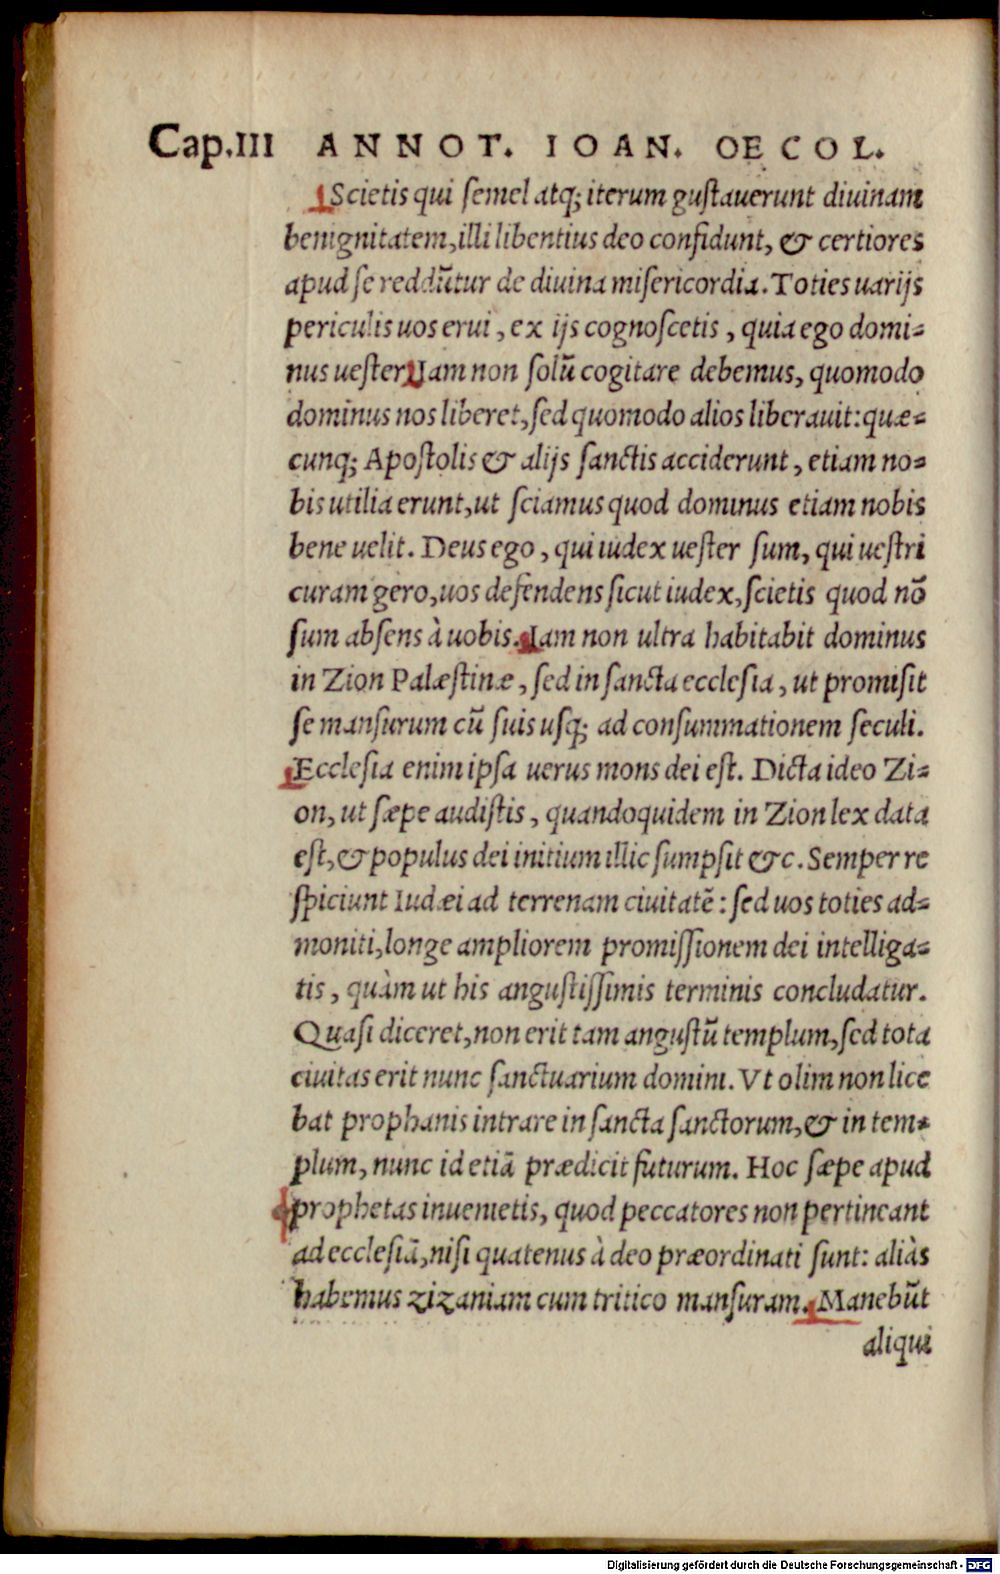 Cap.III ANNOT. IOAN. OECOL.
Scietis qui semel atq; iterum gustauerunt diuinam
benignitatem, illi libentius deo confidunt, & certiores
apud se reddũtur de diuina misericordia. Toties uarijs
periculis uos erui, ex ijs cognoscetis, quia ego domi-
nus uester. Iam non solũ cogitare debemus, quomodo
dominus nos liberet, sed quomodo alios liberauit: quæ-
cunq; Apostolis & alijs sanctis acciderunt, etiam no-
bis utilia erunt, ut sciamus quod dominus etiam nobis
bene uelit. Deus ego, qui iudex uester sum, qui uestri
curam gero, uos defendens sicut iudex, scietis quod nõ
sum absens à uobis. Iam non ultra habitabit dominus
in Zion Palæstinæ, sed in sancta ecclesia, ut promisit
se mansurum cũ suis usq; ad consummationem seculi.
Ecclesia enim ipsa uerus mons dei est. Dicta ideo Zi-
on, ut sæpe audistis, quandoquidem in Zion lex data
est, & populus dei initium illic sumpsit &c. Semper re
spiciunt Iudæi ad terrenam ciuitatẽ: sed uos toties ad-
moniti, longe ampliorem promissionem dei intelliga-
tis, quàm ut his angustissimis terminis concludatur.
Quasi diceret, non erit tam angustũ templum, sed tota
ciuitas erit nunc sanctuarium domini. Vt olim non lice
bat prophanis intrare in sancta sanctorum, & in tem-
plum, nunc id etiã prædicit futurum. Hoc sæpe apud
prophetas inuenietis, quod peccatores non pertineant
ad ecclesiã, nisi quatenus à deo præordinati sunt: aliàs
habemus zizaniam cum tritico mansuram. Manebũt
aliqui
Digitalisierung gefördert durch die Deutsche Forschungsgemeinschaft - DFG